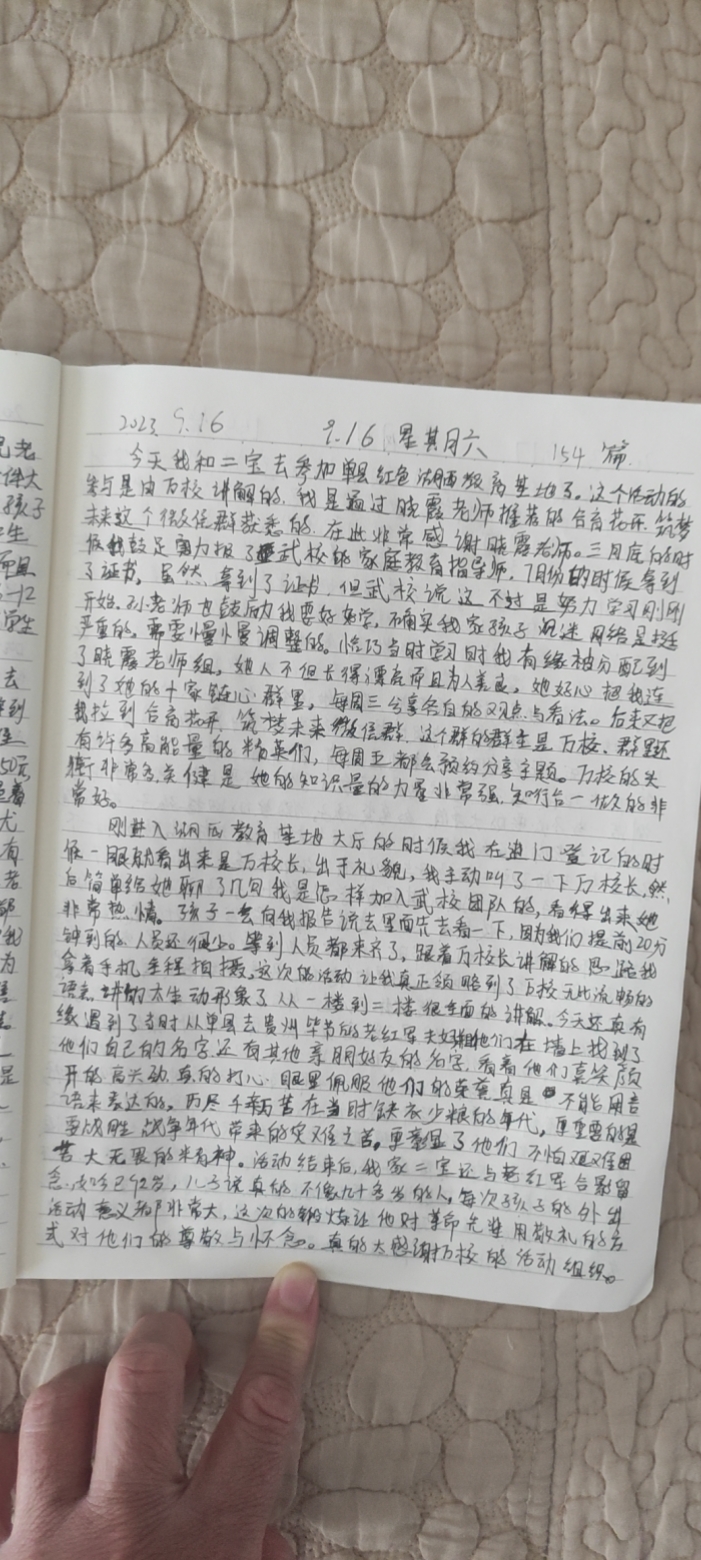 2023. 9.16 9.16 星期六 154 篇
今天我和二宝去参加单县红色湖西教育基地了。这个活动的
参与是由万校讲解的，我是通过晓霞老师推荐的合育花开 筑梦
未来这个微信群获悉的，在此非常感谢晓霞老师。三月底的时
候我鼓足勇力报了武校的家庭教育指导师，7月份的时候拿到
了证书，虽然拿到了证书，但武校说这不过是努力学习刚刚
开始。孙老师也鼓励我要好好学，确实我家孩子沉迷网络是挺
严重的，需要慢慢调整的。恰巧当时学习时我有缘被分配到
了晓霞老师组，她人不但长得漂亮而且为人善良，她好心把我连
到了她的十家链心群里，每周三分享各自的观点与看法。后来又把
我拉到合育花开，筑梦未来微信群，这个群的群主是万校、群里还
有许多高能量的精英们，每周五都会预约分享主题。万校的头
衔非常多，关键是她的知识量的力量非常强，知行合一做的非
常好。
刚进入湖西教育基地大厅的时候我在进门登记的时
候一眼就看出来是万校长，出于礼貌，我主动叫了一下万校长，然
后简单给她聊了几句我是怎样加入武校团队的，看得出来她
非常热情。孩子一会向我报告说去里面先去看一下，因为我们提前20分
钟到的，人员还很少。等到人员都来齐了，跟着万校长讲解的思路我
拿着手机全程拍摄，这次的活动让我真正领略到了万校无比流畅的
语言，讲的太生动形象了从一楼到二楼很全面的讲解。今天还真有
缘遇到了当时从单县去贵州毕节的老红军夫妇他们在墙上找到了
他们自己的名字还有其他亲朋好友的名字，看着他们喜笑颜
开的高兴劲，真的打心眼里佩服他们的荣誉真是不能用言
语来表达的，历尽千辛万苦在当时缺衣少粮的年代，更重要的是
要战胜战争年代带来的灾难之苦，更彰显了他们不怕艰难困
苦大无畏的精神。活动结束后，我家二宝还与老红军合影留
念，爷爷已92岁，儿子说真的不像九十多岁的人，每次孩子的外出
活动意义都非常大，这次的锻炼让他对革命先辈用敬礼的方
式对他们的尊敬与怀念。真的太感谢万校的活动组织。
老
件大
孩子
生
而且
学生
去
到
50元
尤
有
老
都
我
为
是